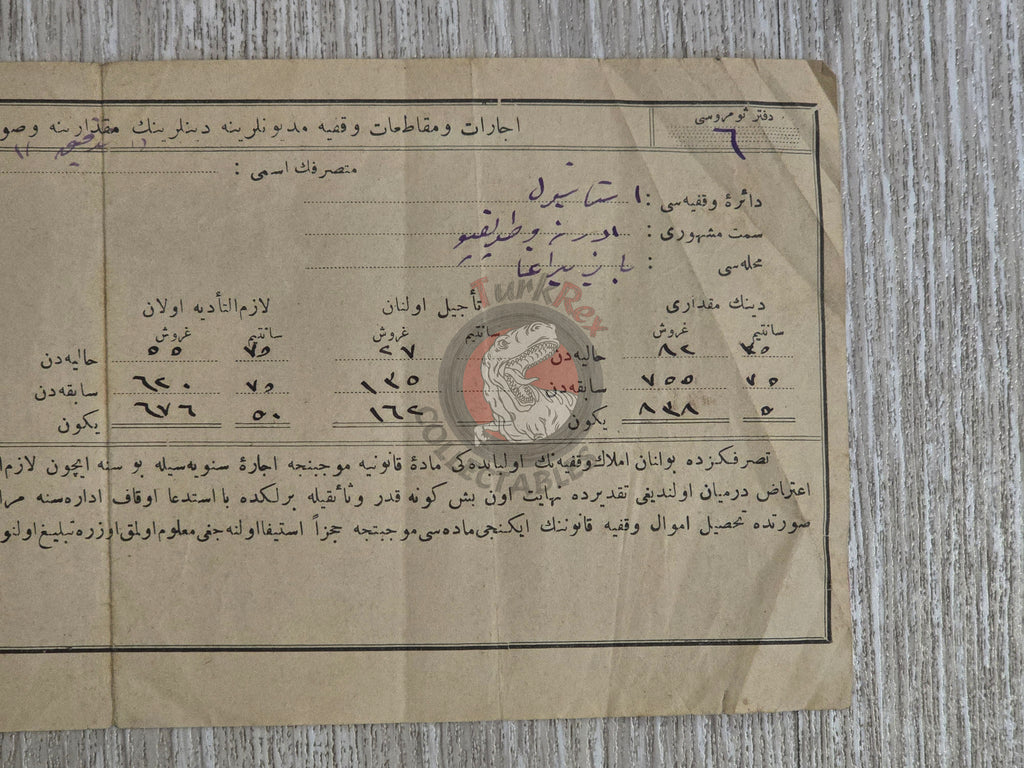 دفتر نوموروسی
٦
اجارات و مقاطعات وقفیه مدیونلرینه دینلرینك مقدارینه وصو
متصرفك اسمی :
دائرهٔ وقفیه‌سی : استانبول
سمت مشهوری : ادرنه
محله‌سی : بایزید اغا
دینك مقداری تأجیل اولنان لازم التأدیه اولان
سانتیم غروش سانتیم غروش سانتیم غروش
٣٥ ٨٢ حالیه‌دن ٢٧ ٧٥ ٥٥ حالیه‌دن
٧٥ ٧٥٥ سابقه‌دن ١٣٥ ٧٥ ٦٢٠ سابقه‌دن
٥ ٨٣٨ یكون ١٦٢ ٥٠ ٦٧٦ یكون
تصرفكزده بوانان املاك وقفیه‌نك اولبابده‌كی مادهٔ قانونیه موجبنجه اجارهٔ سنویه‌سیله بو سنه ایچون لازم
اعتراض درمیان اولندیغی تقدیرده نهایت اون بش كونه قدر وثائقیله برلكده با استدعا اوقاف اداره‌سنه مرا
صورتده تحصیل اموال وقفیه قانوننك ایكنجی ماده‌سی موجبنجه حجزاً استیفا اولنه‌جغی معلوم اولمق اوزره تبلیغ اولنو
TurkRex
COLLECTABLES